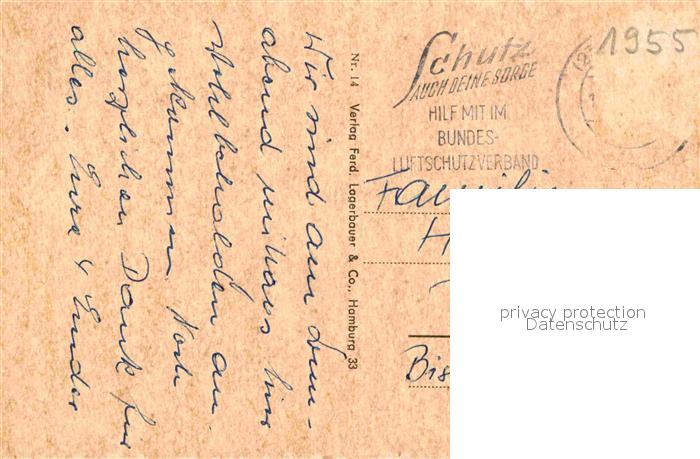 Wir sind am Sonn-
abend mittags hier
Wohlbehalden an-
gekommen. Noch
herzlichen Dank für
alles. Eure 4 Sünder
Nr. 14 Verlag Ferd. Lagerbauer & Co., Hamburg 33
Schutz
AUCH DEINE SORGE
HILF MIT IM
BUNDES-
LUFTSCHUTZVERBAND
1955
Familie
H
Bis
privacy protection
Datenschutz